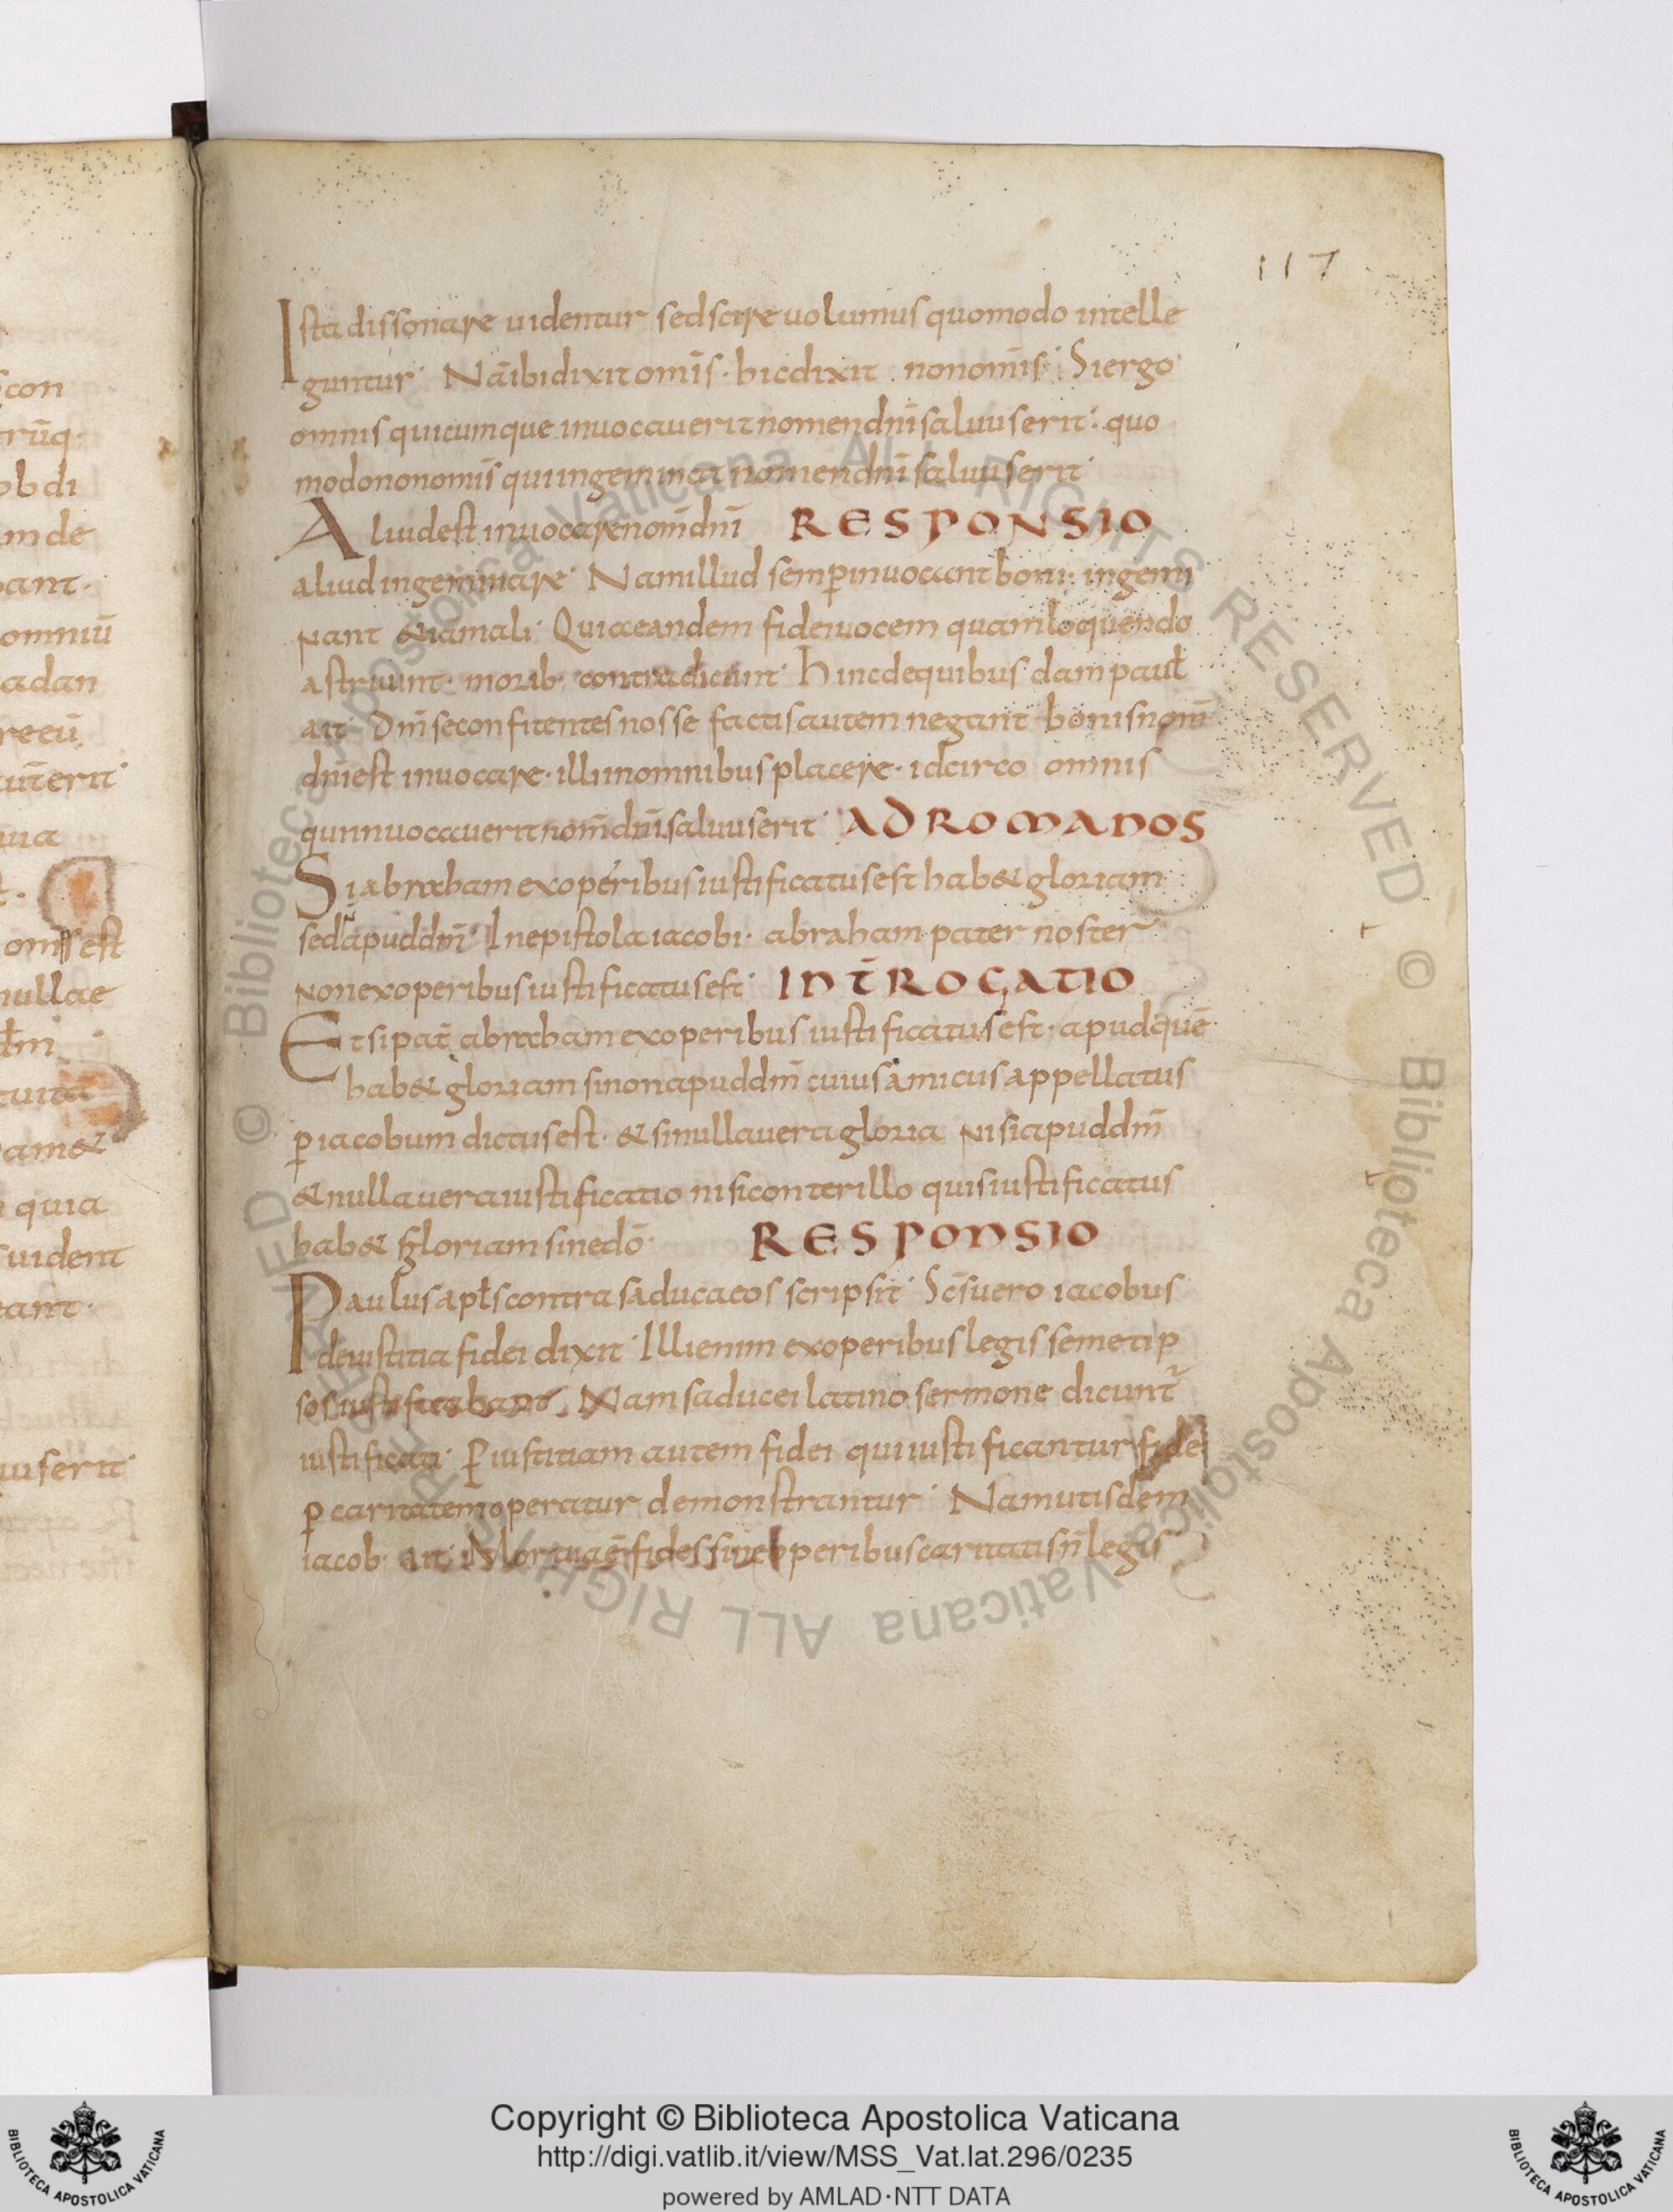 con
rūq·
ob di
m de
bant·
omniū
adan
recū
ut̄erit
uia
omsest
nullae
tuita
am&
quia
suident
eant·
uiserit
117
Ista dissonare uidentur sed scire uolumus quomodo intelle
guntur· Nāibi dixit omīs· hic dixit non omīs· Si ergo
omnis quicumque inuocauerit nomen dnī saluus erit· quo
modo non omīs qui ingeminat nomen dnī saluus erit·
Aliud est inuocare nom̄ dnī RESPONSIO
aliud ingeminare· Nam illud semp inuocant boni· ingemi
nant &iam mali· Quia eandem fidei uocem quam loquendo
astruunt· morib· contradicunt· hinc de quibusdam paul̄
ait· Dm̄ se confitentes nosse factis autem negant· bonis nom̄
dnī est inuocare· illi in omnibus placere· idcirco omnis
qui inuocauerit nom̄ dnī saluus erit· AD ROMANOS
Si abraham ex operibus iustificatus est hab& gloriam
sed apud dm̄· In epistola iacobi· abraham pater noster
non ex operibus iustificatus est· INT̄ROGATIO
Et si pat̄ abraham ex operibus iustificatus est· apud quē
hab& gloriam si non apud dm̄ cuius amicus appellatus
p iacobum dictus est· & si nulla uera gloria nisi apud dm̄
& nulla uera iustificatio nisi conterillo quis iustificatus
hab& gloriam sine dō· RESPONSIO
Paulus apl̄s contra saducaeos scripsit· Sc̄s uero iacobus
de iustitia fidei dixit· Illi enim ex operibus legis semetip
sos iustificabant· Nam saducei latino sermone dicunt̄
iustificati· P iustitiam autem fidei qui iustificantur fide
p caritatem operatur demonstrantur· Nam ut isdem
iacob· ait· Mortua ē fides sine operibus caritatis n̄ legis
© Biblioteca Apostolica Vaticana ALL RIGHTS RESERVED © Biblioteca Apostolica Vaticana ALL RIGHTS RESERVED
BIBLIOTECA APOSTOLICA VATICANA
Copyright © Biblioteca Apostolica Vaticana
http://digi.vatlib.it/view/MSS_Vat.lat.296/0235
powered by AMLAD·NTT DATA
BIBLIOTECA APOSTOLICA VATICANA